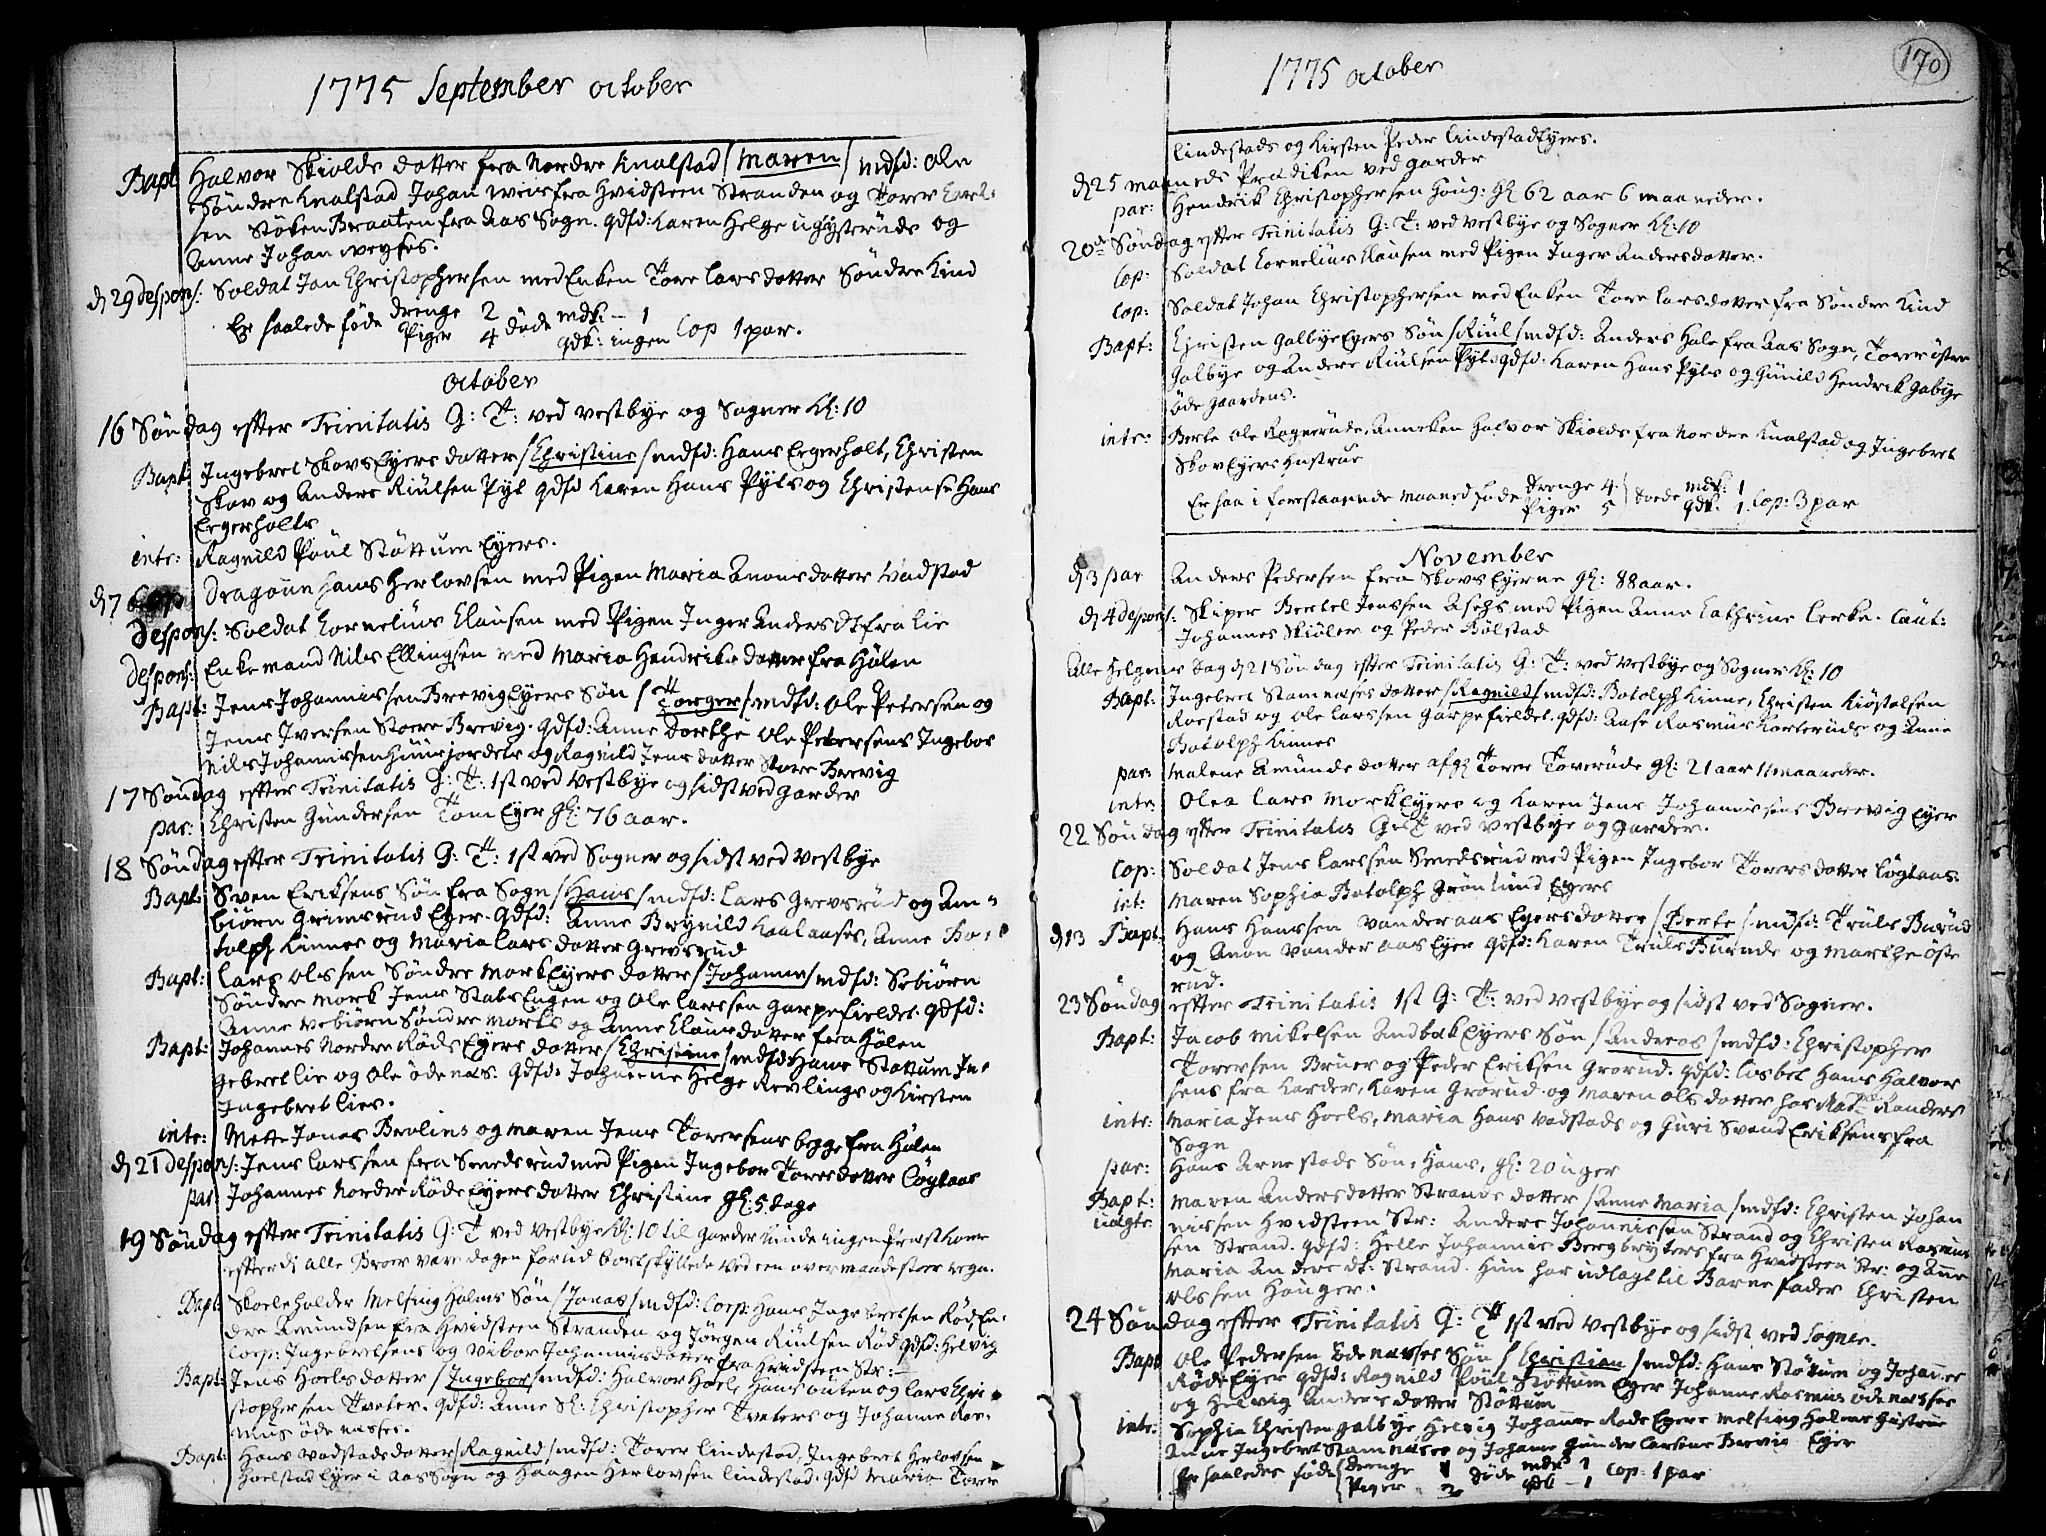 1775 September october
Bapt: Halvor Skiolds datter fra Nordre Knalstad / Maren / mdfd: Ole
Søndre Knalstad Johan weis fra Hvidsteen Stranden og Torer Carl-
sen Støken Braaten fra Aas Sogn. qdfd: Karen Helge og
Anne Johan weyses.
d 29 despons: Soldat Jan Christophersen med Enken Tore Lars datter Søndre Kind
Er saalede føde drenge 2 døde mdk: – 1
Piger 4 qdk: ingen Cop 1 par.
October
16 Søndag effter Trinitatis G: T: ved Vestbye og Sogner Kl: 10
Bapt: Ingebret Skovs Eyers datter / Christine / mdfd: Hans Eegerholt, Christen
Skov og Anders Riulsen Pyl qdfd Karen Hans Pyls og Christense Hans
Eegerholts
intr: Ragnild Poul Støttum Eyers.
d 7 Cop: Dragoun Hans Herlovsen med Pigen Maria Anons datter Wadstad
Despons: Soldat Cornelius Clausen med Pigen Inger Anders Dt fra Lie
Despons: Enke mand Nils Ellingsen med Maria Hendriks datter fra Hølen
Bapt: Jens Johannissen Brevig Eyers Søn / Torger / mdfd: Ole Petersen og
Jens Iversen Store Brevig. qdfd: Anne Dorthe Ole Petersens Ingebor
Nils Johannissen Huusjordets og Ragnild Jens datter Store Brevig
17 Søndag effter Trinitatis G: T: 1st ved Vestbye og sidst ved Garder
par: Christen Gundersen Tom Eyer gl: 76 aar.
18 Søndag effter Trinitatis G: T: 1st ved Sogner og sidst ved Vestbye
Bapt: Sven Eriksens Søn fra Sogn / Hans / mdfd: Lars Grevsrud og Am-
biørn Grimsrud Eyer. qdfd: Anne Brynild Kaalaases, Anne Bo-
tolph Kinnes og Maria Lars datter Grevsrud
Bapt: Lars Olssen Søndre Mork Eyers datter / Johanne / mdfd: Sebiørn
Søndre Mork Jens Stabs Engen og Ole Larssen Garpefieldet. qdfd:
Anne Vebiørn Søndre Morks og Anne Claus datter fra Hølen
Bapt: Johannes Nordre Røds Eyers datter / Christine / mdfd Hans Støttum In-
gebret Lie og Ole Ødenæs. qdfd: Johanne Helge Revlings og Kirsten
Ingebret Lies.
intr: Mette Jonas Brolins og Maren Jens Torersens begge fra Hølen
d 21 Despons: Jens Larssen fra Smedsrud med Pigen Ingebor Torersdatter Løgtaas
par: Johannes Nordre Røds Eyers datter Christine gl: 5 dage
19 Søndag effter Trinitatis G: T ved Vestbye Kl: 10 til Garder kunde ingen Præst kome
effterdi alle Broer vare dagen forud bortskyllede ved een overmaade stoer regn.
Bapt: Skoleholder Melsing Holms Søn / Jonas / mdfd: Corp: Hans Ingebretsen Rød
Amundsen fra Hvidsteen Stranden og Jørgen Riulsen Rød qdfd: Helvig
Corp: Ingebretsens og Vibor Johannisdatter fra Hvidsteen Str:
Bapt: Jens Hoels datter / Ingebor / mdfd: Halvor Hoel, Hans og Lars Chri-
stophersen Tveter. qdfd: Anne Sl: Christopher Tveters og Johanne Ras-
mus Ødenæsses.
Bapt: Hans Wadstads datter / Ragnild / mdfd: Torer Lindestad, Ingebret Herlovsen
Hoelstad Eyer i Aas Sogn og Haagen Herlovsen Lindestad. qdfd Maria Torer
1775 october
170
Lindestads og Kirsten Peder Lindestad Eyers.
d 25 maaneds Prædiken ved Garder
par: Hendrik Christophersen Houg: gl 62 aar 6 maaneder.
20de Søndag effter Trinitatis G: T: ved Vestbye og Sogner Kl: 10
Cop: Soldat Cornelius Clausen med Pigen Inger Andersdatter.
Cop: Soldat Johan Christophersen med Enken Tore Larsdatter fra Søndre Kind
Bapt: Christen Galbye Eyers Søn / Riul / mdfd: Anders Hale fra Aas Sogn, Torer østre
Galbye og Anders Riulsen Pyl. qdfd: Karen Hans Pyls og Gunild Hendrik Gabye
øde Gaardens.
intr: Berte Ole Ragnerude, Anneken Halvor Skiolds fra Nordre Knalstad og Ingebret
Skov Eyers Hustrue
Er saa i forstaaende maaned føde drenge 4. døde mdk: 1
Piger 5 qdk. 1. Cop: 3 par
November
d 3 par Anders Pedersen fra Skovs Eyerne gl: 88 aar.
d 4 Despons: Skiper Bertel Jenssen Asehs med Pigen Anne Cathrine Lerke. Caut:
Johannes Skiøler og Peder Bølstad
Alle Helgens Dag d 21 Søndag effter Trinitatis G: T: ved Vestbye og Sogner Kl: 10
Bapt: Ingebret Stamnæses datter / Ragnild / mdfd: Botolph Kinne, Christen Kiøstelsen
Roestad og Ole Larssen Garpefieldet. qdfd: Aase Rasmus Korteruds og Anne
Botolph Kinnes
par: Malene Amunds datter af Torer Toverude gl: 21 aar 11 maaneder.
intr: Olea Lars Mork Eyers og Karen Jens Johannissens Brevig Eyer
22 Søndag effter Trinitatis G: T ved Vestbye og Garder.
Cop: Soldat Jens Larssen Smedsrud med Pigen Ingebor Torersdatter Løgtaas.
int: Maren Sophia Botolph Grønlund Eyers
d 13 Bapt: Hans Hanssen Vanderaas Eyers datter / Berte / mdfd: Truls Burud
og Anon Vanderaas Eyer qdfd: Karen Truls Buruds og Marthe Øste
rud.
23 Søndag effter Trinitatis 1st G: T: ved Vestbye og sidst ved Sogner.
Bapt: Jacob Mikelsen Andbek Eyers Søn / Andreas / mdfd: Christopher
Torersen Bruer og Peder Eriksen Grorud. qdfd: Lisbet Hans Halvor
sens fra Karder, Karen Grorud og Maren Ols datter hos Randers
intr: Maria Jens Hoels, Maria Hans Wadstads og Guri Svend Eriksens fra
Sogn
par: Hans Arnestads Søn: Hans, gl: 20 uger
Bapt: Maren Andersdatter Strands datter / Anne Maria / mdfd: Christen Johan
uægte nissen Hvidsteen Str: Anders Johannissen Strand og Christen Rasmus
sen Strand. qdfd: Helle Johannis Bergbryters fra Hvidsteen Str: og Anne
Maria Anders dt: Strand. Hun har udlagt til Barne fader Christen
Olssen Houger.
24 Søndag effter Trinitatis G: T 1st ved Vestbye og sidst ved Sogner.
Bapt Ole Pedersen Ødenæsses Søn / Christian / mdfd: Hans Støttum og Johannes
Røds Eyer qdfd: Ragnild Poul Støttum Eyer Johanne Rasmus Ødenæsses
og Helvig Anders datter Støttum
intr: Sophia Christen Galbye, Helvig Johannes Røds Eyers Melsing Holms Hustrue
Anne Ingebret Stamnæses og Johane Gunder Carlsens Brevig Eyer
Er saaledes føde drenge 4 døde mdk 1 Cop: 1 par
Piger 2 qdk – 1